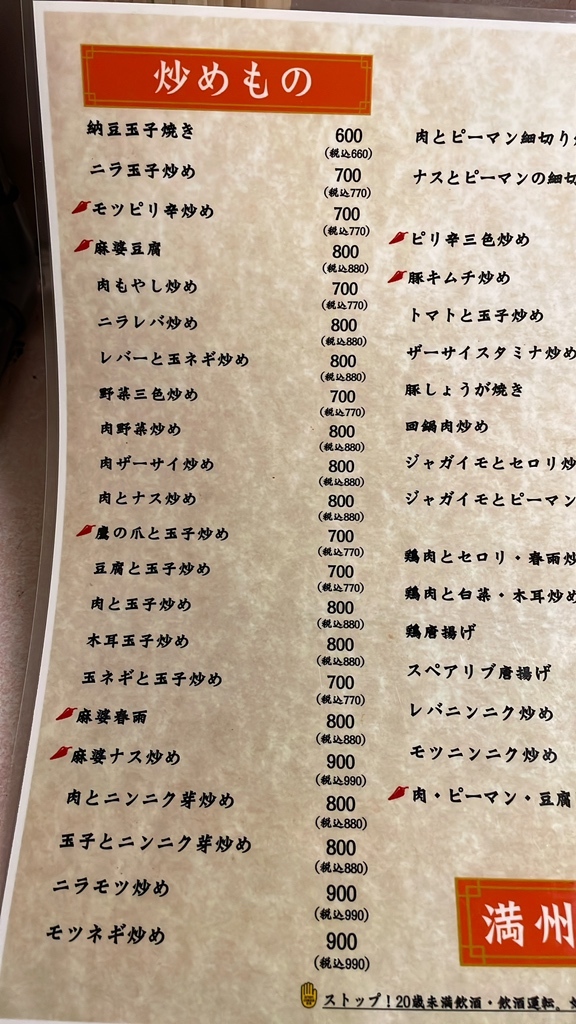 炒めもの
納豆玉子焼き 600
(税込660)
ニラ玉子炒め 700
(税込770)
モツピリ辛炒め 700
(税込770)
麻婆豆腐 800
(税込880)
肉もやし炒め 700
(税込770)
ニラレバ炒め 800
(税込880)
レバーと玉ネギ炒め 800
(税込880)
野菜三色炒め 700
(税込770)
肉野菜炒め 800
(税込880)
肉ザーサイ炒め 800
(税込880)
肉とナス炒め 800
(税込880)
鷹の爪と玉子炒め 700
(税込770)
豆腐と玉子炒め 700
(税込770)
肉と玉子炒め 800
(税込880)
木耳玉子炒め 800
(税込880)
玉ネギと玉子炒め 700
(税込770)
麻婆春雨 800
(税込880)
麻婆ナス炒め 900
(税込990)
肉とニンニク芽炒め 800
(税込880)
玉子とニンニク芽炒め 800
(税込880)
ニラモツ炒め 900
(税込990)
モツネギ炒め 900
(税込990)
肉とピーマン細切り
ナスとピーマンの細切
ピリ辛三色炒め
豚キムチ炒め
トマトと玉子炒め
ザーサイスタミナ炒め
豚しょうが焼き
回鍋肉炒め
ジャガイモとセロリ炒
ジャガイモとピーマン
鶏肉とセロリ・春雨炒
鶏肉と白菜・木耳炒め
鶏唐揚げ
スペアリブ唐揚げ
レバニンニク炒め
モツニンニク炒め
肉・ピーマン・豆腐
満州
ストップ！20歳未満飲酒・飲酒運転。